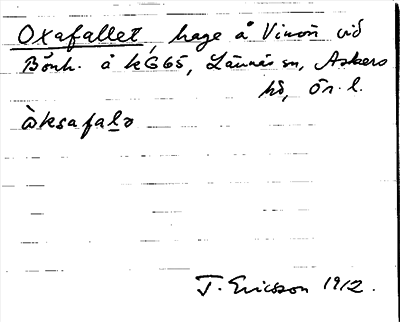 Oxafallet, hage å Vinön vid
Bönh. å kG65, Lännäs sn, Askers
hd, Ör. l.
àksafalə
T. Ericsson 1912.